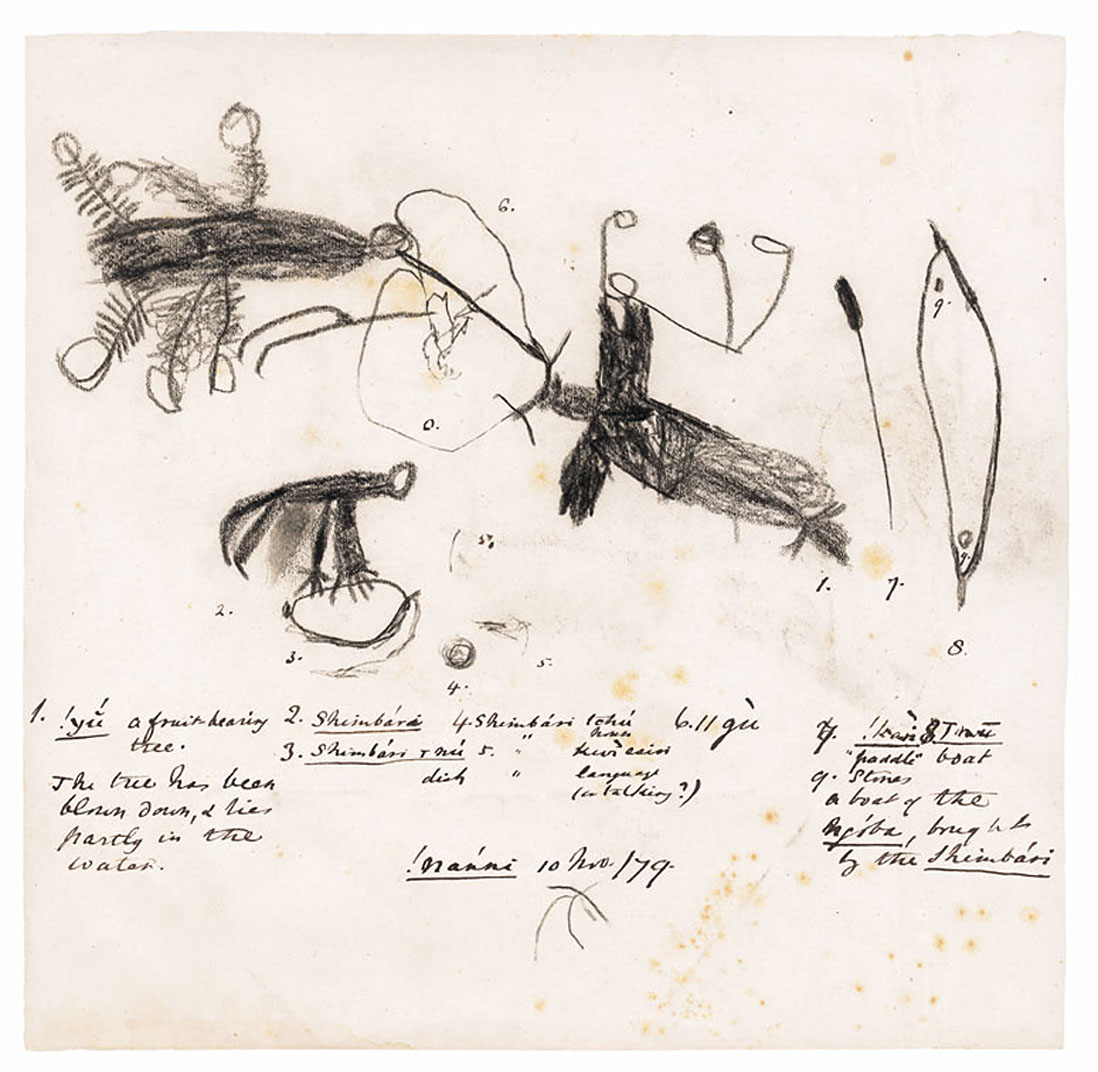 6.
0.
1.
7.
9.
9.
8.
2.
3.
4.
5.
5.
1. !yŭ́ a fruit-bearing
tree.
The tree has been
blown down, & lies
partly in the
water.
2. Shimbárá
3. Shimbári
dish
4. Shimbári
house
5. "
" language
(or talking?)
6. ǁgù
7.
"paddle"
8.
boat
9. Stones
a boat of the
Ngóba, brought
by the Shimbári
!nánni 10 Nov. /79.